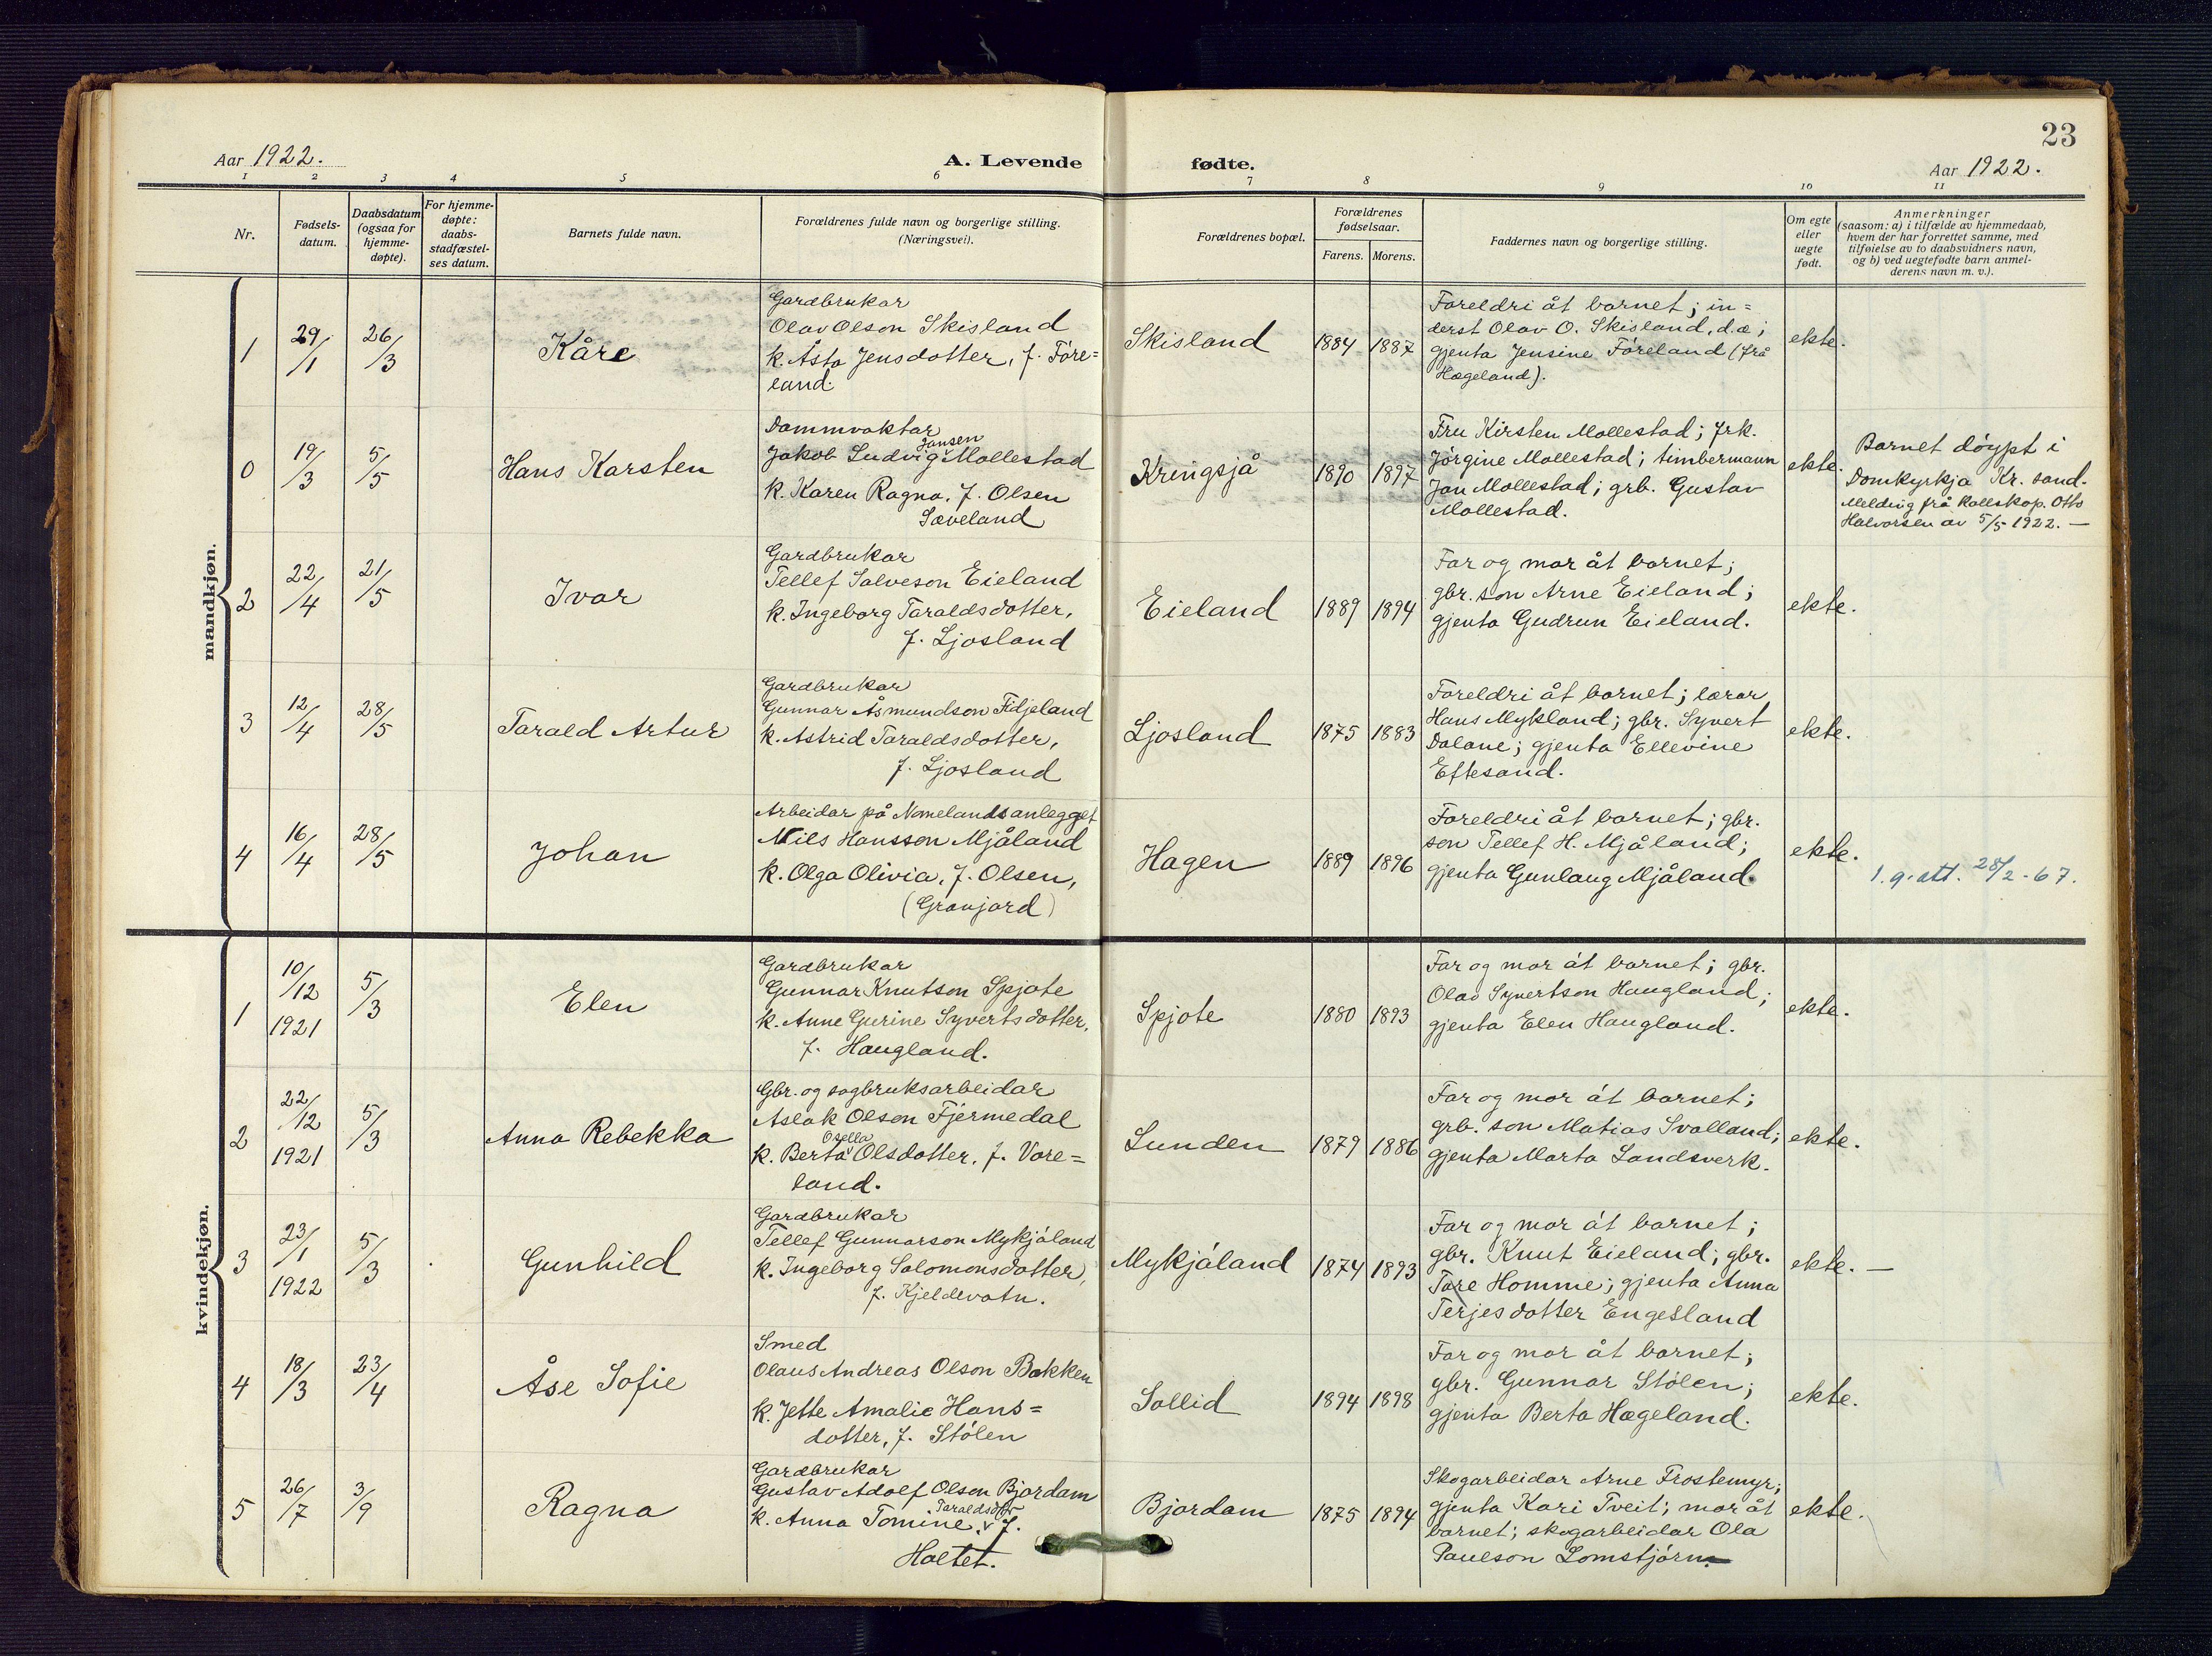 23
Aar 1922.
A. Levende fødte.
Aar 1922.
1 2 3 4 5 6 7 8 9 10 11
Nr.
Fødsels-
datum.
Daabsdatum
(ogsaa for
hjemme-
døpte).
For hjemme-
døpte:
daabs-
stadfæstel-
ses datum.
Barnets fulde navn.
Forældrenes fulde navn og borgerlige stilling.
(Næringsvei).
Forældrenes bopæl.
Forældrenes
fødselsaar.
Farens. Morens.
Faddernes navn og borgerlige stilling.
Om egte
eller
uegte
født.
Anmerkninger
(saasom: a) i tilfælde av hjemmedaab,
hvem der har forrettet samme, med
tilføielse av to daabsvidners navn,
og b) ved uegtefødte barn anmel-
derens navn m. v.).
mandkjøn.
1
29/1
26/3
Kåre
Gardbrukar
Olav Olson Skisland
k. Åsta Jensdotter, f. Føre=
land.
Skisland
1884 1887
Foreldri åt barnet; in=
derst Olav O. Skisland, d.æ;
gjenta Jensine Føreland (frå
Hægeland).
ekte.
0
19/3
5/5
Hans Karsten
Dammvaktar
Jansen
Jakob Ludvig Mollestad
k. Karen Ragna, f. Olsen
Sæveland
Kringsjå
1890 1897
Fru Kirsten Mollestad; frk.
Jørgine Mollestad; timbermann
Jan Mollestad; grb. Gustav
Mollestad.
ekte.
Barnet døypt i
Domkyrkja Kr. sand.
Melding frå kallskap. Otto
Halvorsen av 5/5 1922. —
2
22/4
21/5
Ivar
Gardbrukar
Tellef Salveson Eieland
k. Ingeborg Taraldsdotter,
f. Ljosland
Eieland
1889 1894
Far og mor åt barnet;
gbr. son Arne Eieland;
gjenta Gudrun Eieland.
ekte.
3
12/4
28/5
Tarald Artur
Gardbrukar
Gunnar Åsmundson Fidjeland
k. Astrid Taraldsdotter,
f. Ljosland
Ljosland
1875 1883
Foreldri åt barnet; lærar
Hans Mykland; gbr. Syvert
Dalane; gjenta Ellevine
Eftesand.
ekte.
4
16/4
28/5
Johan
Arbeidar på Nomelandsanlegget
Nils Hansson Mjåland
k. Olga Olivia, f. Olsen,
(Granjord)
Hagen
1889 1896
Foreldri åt barnet; gbr.
son Tellef H. Mjåland;
gjenta Gunlaug Mjåland.
ekte.
1. g. att. 28/2-67.
kvindekjøn.
1
10/12
1921
5/3
Elen
Gardbrukar
Gunnar Knutson Spjote
k. Anne Gurine Syvertsdotter,
f. Haugland.
Spjote
1880 1893
Far og mor åt barnet; gbr.
Olav Syvertson Haugland;
gjenta Elen Haugland.
ekte.
2
22/12
1921
5/3
Anna Rebekka
Gbr. og sagbruksarbeidar
Aslak Olson Fjermedal
Osella
k. Berta Olsdotter, f. Vore=
land.
Lunden
1879 1886
Far og mor åt barnet;
grb. son Matias Svalland;
gjenta Marta Landsverk.
ekte.
3
23/1
1922
5/3
Gunhild
Gardbrukar
Tellef Gunnarson Mykjåland
k. Ingeborg Salomonsdotter,
f. Kjeldevatn.
Mykjåland
1874 1893
Far og mor åt barnet;
gbr. Knut Eieland; gbr.
Tore Homme; gjenta Anna
Terjesdotter Engesland
ekte. —
4
18/3
23/4
Åse Sofie
Smed
Olaus Andreas Olson Bakken
k. Jette Amalie Hans=
dotter, f. Stølen
Sollid
1894 1898
Far og mor åt barnet;
gbr. Gunnar Stølen;
gjenta Berta Hægeland.
ekte.
5
26/7
3/9
Ragna
Gardbrukar
Gustav Adolf Olson Bjordam
Taraldsdtr
k. Anna Tomine, f.
Holtet.
Bjordam
1875 1894
Skogarbeidar Arne Frostemyr;
gjenta Kari Tveit; mor åt
barnet; skogarbeidar Ola
Paulson Lomstjørn.
ekte.